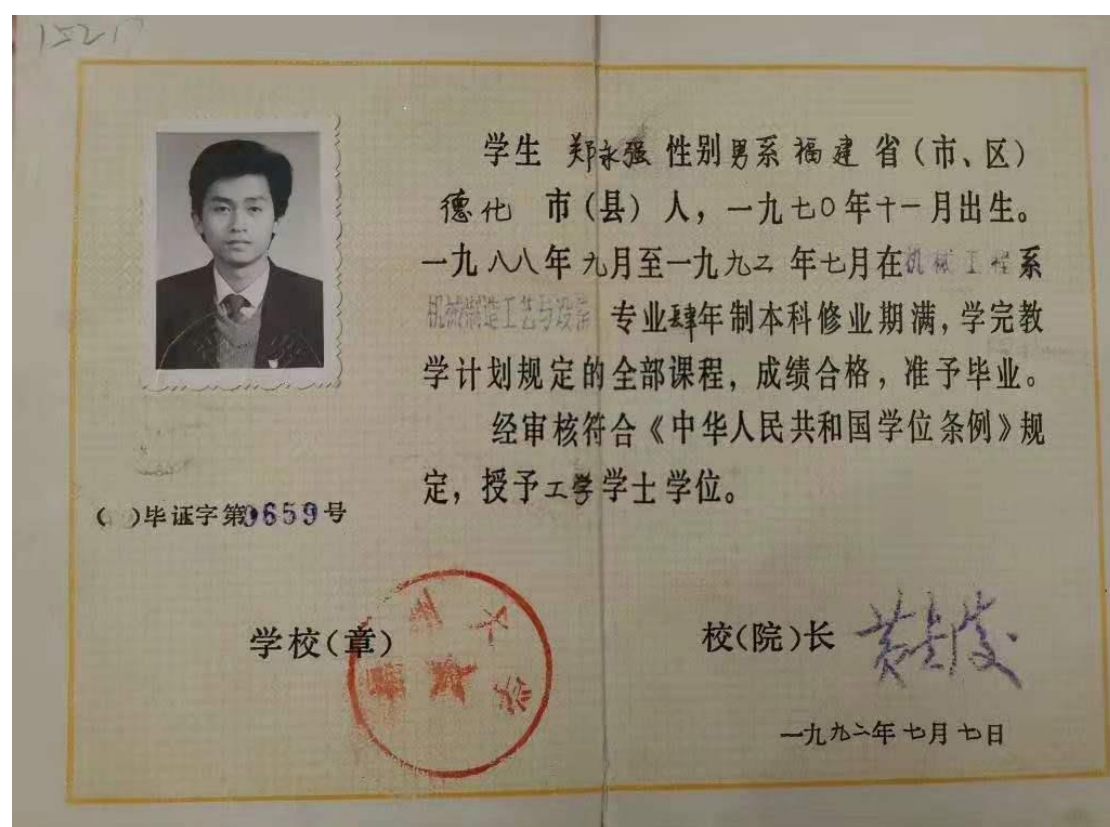 学生 郑永强 性别男系 福建 省(市、区)
德化 市(县)人,一九七〇年十一月出生。
一九八八年九月至一九九二年七月在机械工程系
机械制造工艺与设备 专业肆年制本科修业期满,学完教
学计划规定的全部课程,成绩合格,准予毕业。
经审核符合《中华人民共和国学位条例》规
定,授予工学学士学位。
( )毕证字第0659号
学校(章)
校(院)长
一九九二年七月七日